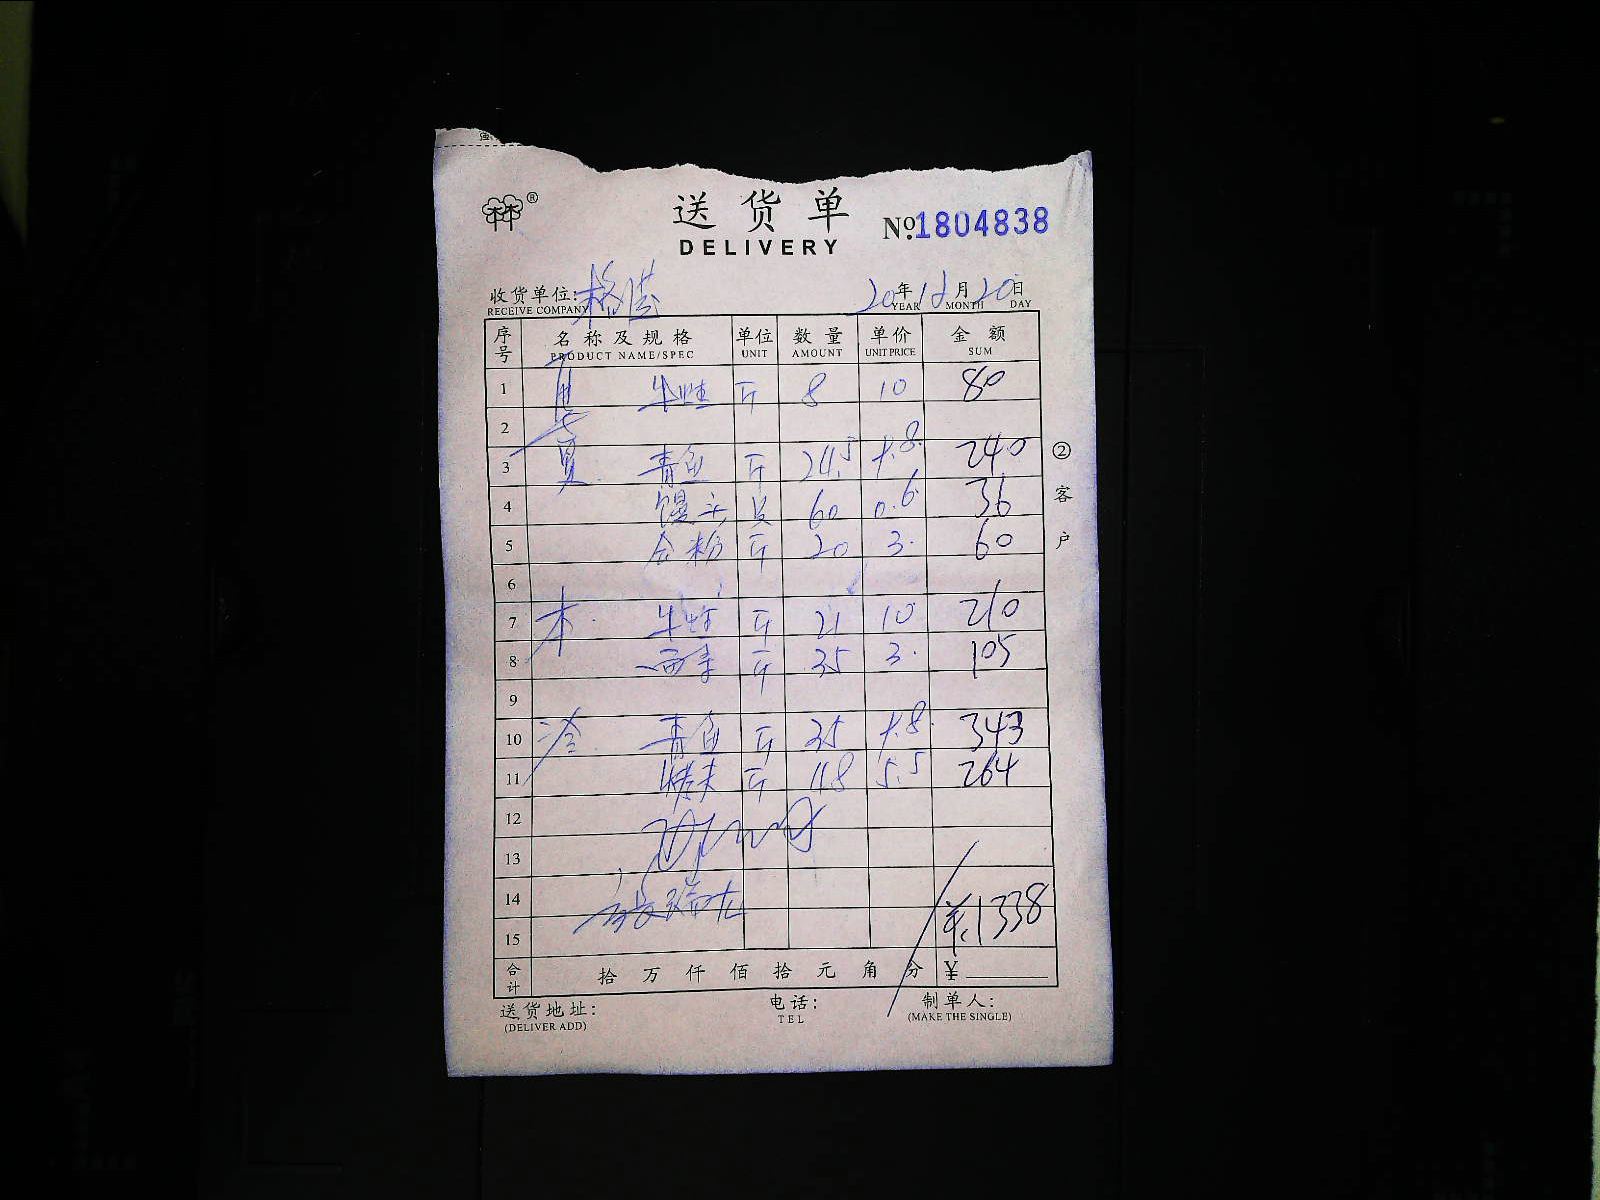 送货单
DELIVERY
№ 1804838
收货单位:
RECEIVE COMPANY
20年12月20日
YEAR MONTH DAY
序号 名称及规格 单位 数量 单价 金额
PRODUCT NAME/SPEC UNIT AMOUNT UNIT PRICE SUM
1 牛蛙 斤 8 10 80
2
3 夏 青鱼 斤 24.5 9.8 240
4 馒头 只 60 0.6 36
5 合粉 斤 20 3. 60
6
7 本 牛蛙 斤 21 10 210
8 斤 35 3. 105
9
10 冷 青鱼 斤 35 9.8 343
11 斤 5.5 264
12
13
14
15 ¥1338
合计 拾 万 仟 佰 拾 元 角 分 ¥
送货地址:
(DELIVER ADD)
电话:
TEL
制单人:
(MAKE THE SINGLE)
②客户